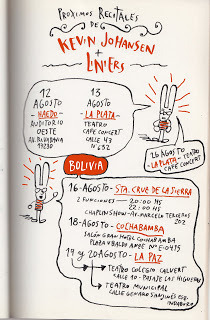 PRÓXIMOS RECITALES
DE
KEVIN JOHANSEN
+
LINIERS
12
AGOSTO
-HAEDO-
AUDITORIO
OESTE
AV. RIVADAVIA
17230
13
AGOSTO
-LA PLATA-
TEATRO
CAFE CONCERT
CALLE 43
N°632
26 AGOSTO
-LA PLATA- TEATRO
CAFE CONCERT
BOLIVIA
16-AGOSTO- STA. CRUZ DE LA SIERRA
2 FUNCIONES
20:00 HS
22:00 HS
CHAPLIN SHOW- AV. MARCELO TERCEROS
202
18-AGOSTO- COCHABAMBA
SALÓN GRAN HOTEL COCHABAMBA
PLAZA UBALDO ANZE N° E-0415
19 y 20 AGOSTO- LA PAZ
TEATRO COLEGIO CALVERT
CALLE 10 - PASAJE LAS HIGUERAS
TEATRO MUNICIPAL
CALLE GENARO SANJINÉS ESQ.
INDABURO